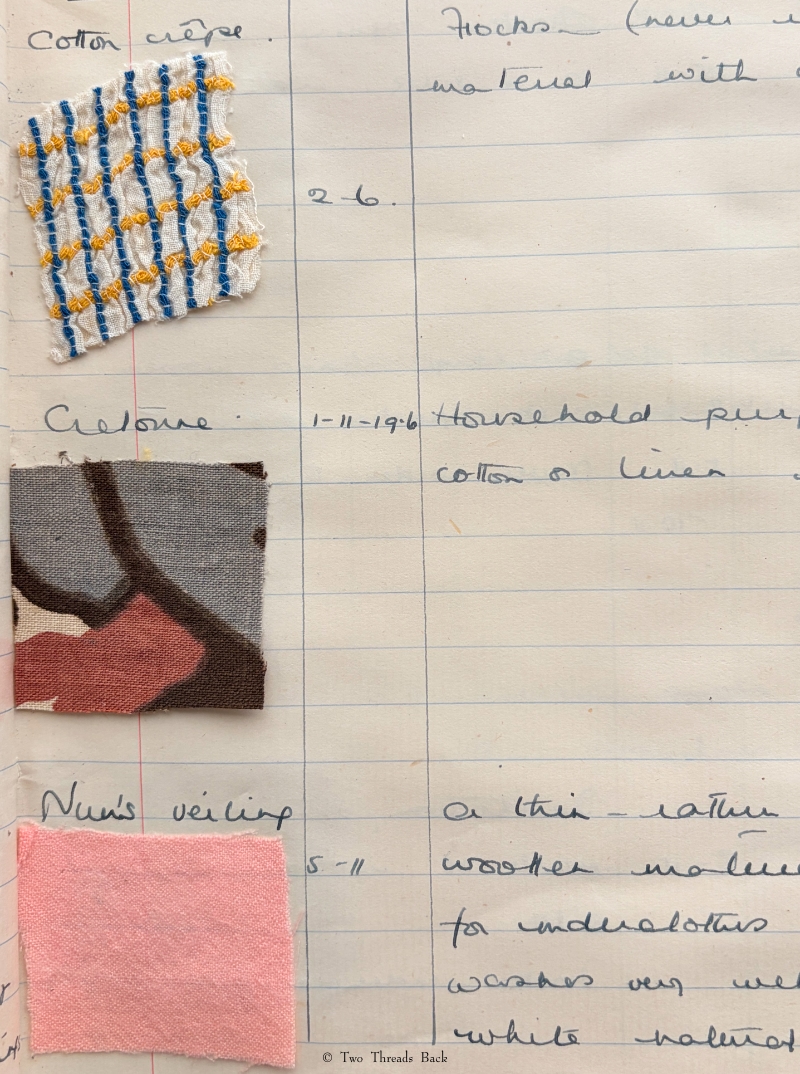 Cotton crêpe.
Frocks (never
material with
2-6.
Cretonne.
1-11-19·6 Household
cotton or linen
Nun's veiling
a thin - rather
5-11
woollen
for underclothes
washes very
white natural
© Two Threads Back